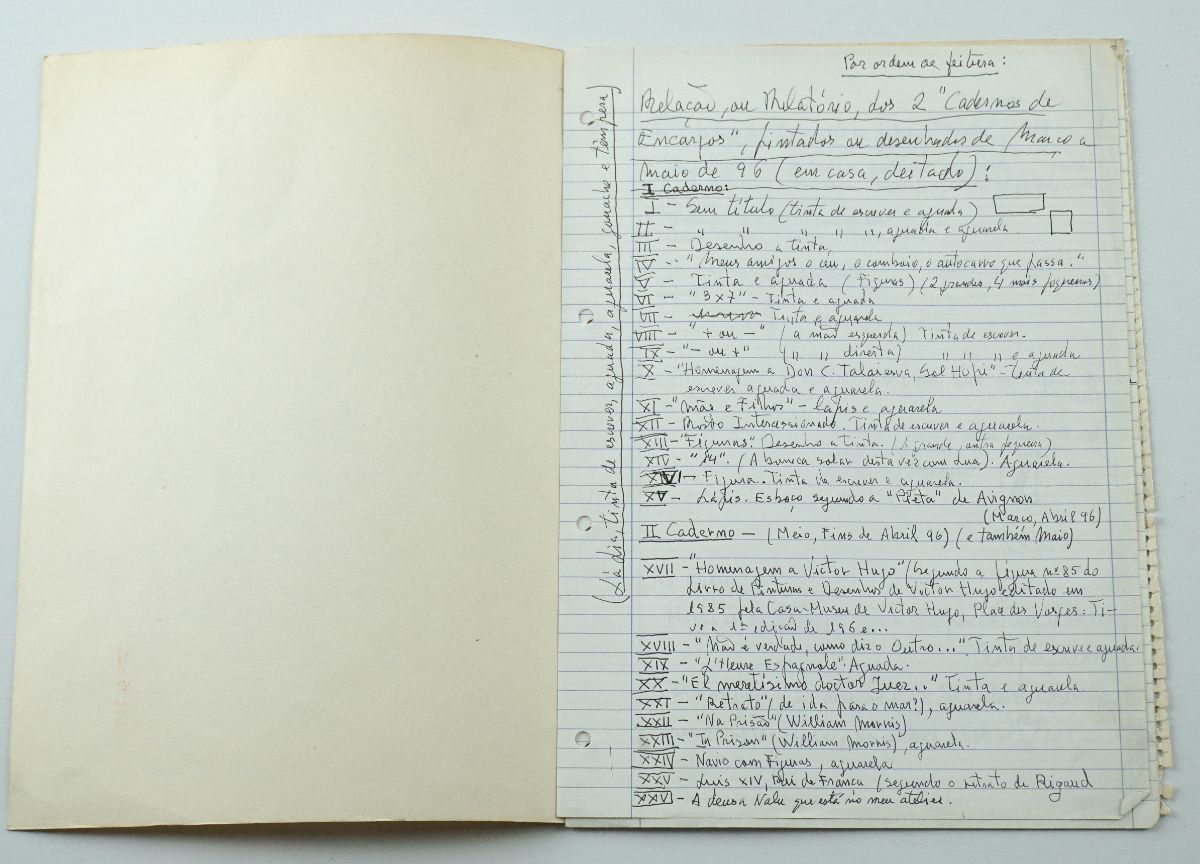 Por ordem de feitura:
Relação, ou Relatório, dos 2 "Cadernos de
Encargos", pintados ou desenhados de Março a
Maio de 96 (em casa, deitado):
I Caderno:
I - Sem título (tinta de escrever e aguada)
II - " " " " ", aguada e aguarela
III - Desenho a tinta,
IV - "Meus amigos o céu, o comboio, o autocarro que passa."
V - Tinta e aguada (Figuras) (2 grandes, 4 mais pequenas)
VI - "3x7" - Tinta e aguada
VII - Tinta e aguarela
VIII - "+ ou -" (a mão esquerda) Tinta de escrever.
IX - "- ou +" (" " direita) " " " e aguada
X - "Homenagem a Don C. Talaresva, Sol Hupi" - tinta de
escrever aguada e aguarela.
XI - "Mãe e Filhos" - Lápis e aguarela
XII - Rosto Interseccionado. Tinta de escrever e aguarela.
XIII - "Figuras". Desenho a tinta. (1 grande, outra pequena)
XIV - "14". (A barca solar desta vez com Lua). Aguarela.
XVI - Figura. Tinta de escrever e aguarela.
XV - Lápis. Esboço segundo a "Pietà" de Avignon
(Março, Abril 96)
II Caderno - (Meio, Fins de Abril 96) (e também Maio)
XVII - "Homenagem a Victor Hugo" (Segundo a figura nº 85 do
Livro de Pinturas e Desenhos de Victor Hugo editado em
1985 pela Casa-Museu de Victor Hugo, Place des Vosges. Ti-
ve a 1ª edição de 196 e...
XVIII - "Não é verdade, como diz o Outro..." Tinta de escrever e aguada.
XIX - "L'Heure Espagnole" Aguada.
XX - "El meretisimo doctor Juez.." Tinta e aguarela.
XXI - "Retrato" (de ida para o mar?), aguarela.
XXII - "Na Prisão" (William Morris)
XXIII - "In Prison" (William Morris), aguarela.
XXIV - Navio com Figuras, aguarela
XXV - Luis XIV, Rei de França (segundo o retrato de Rigaud
XXV - A deusa Nalu que está no meu atelier.
(Lá dia, tinta de escrever, aguada, aguarela, guache e têmpera)